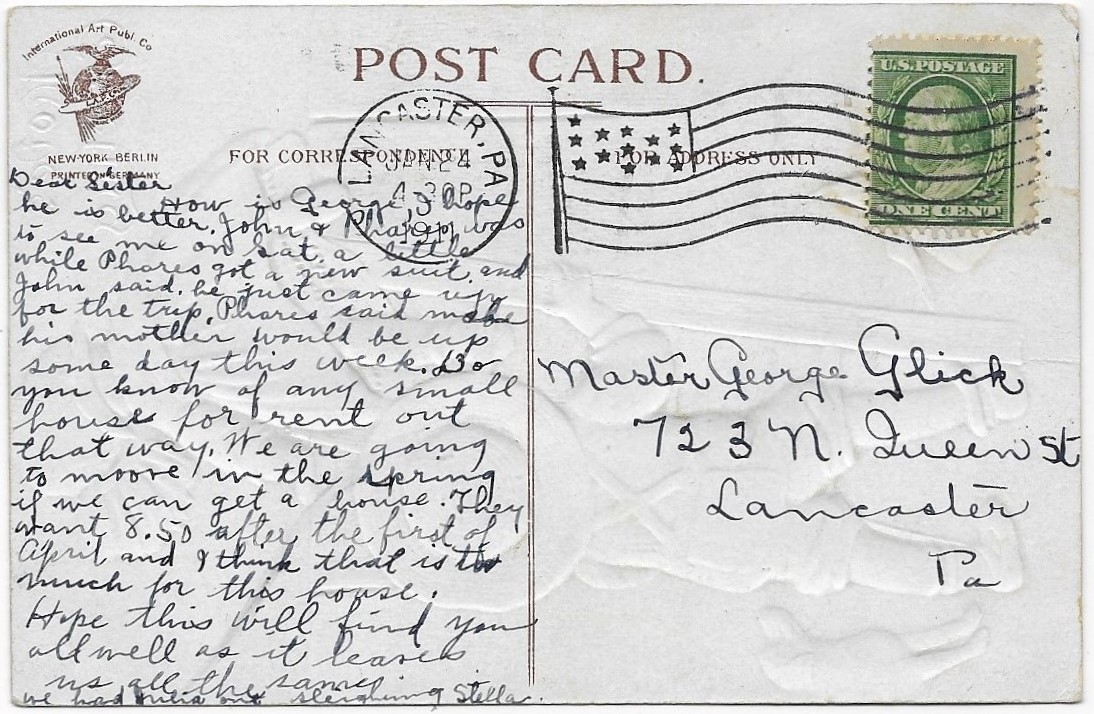 International Art Publ. Co
NEW-YORK BERLIN
PRINTED IN GERMANY
POST CARD.
FOR CORRESPONDENCE
FOR ADDRESS ONLY
LANCASTER, PA
JAN 24
4-30P
1911
U.S. POSTAGE
ONE CENT
Dear Sister
How is George, I hope
he is better. John & Phares was
to see me on Sat. a little
while Phares got a new suit, and
John said, he just came up
for the trip. Phares said mabe
his mother would be up
some day this week. Do
you know of any small
house for rent out
that way. We are going
to moove in the spring
if we can get a house. They
want 8.50 after the first of
April and I think that is to
much for this house.
Hope this will find you
all well as it leaves
us all the same
we had out sleighing Stella.
Master George Glick
723 N. Queen St
Lancaster
Pa